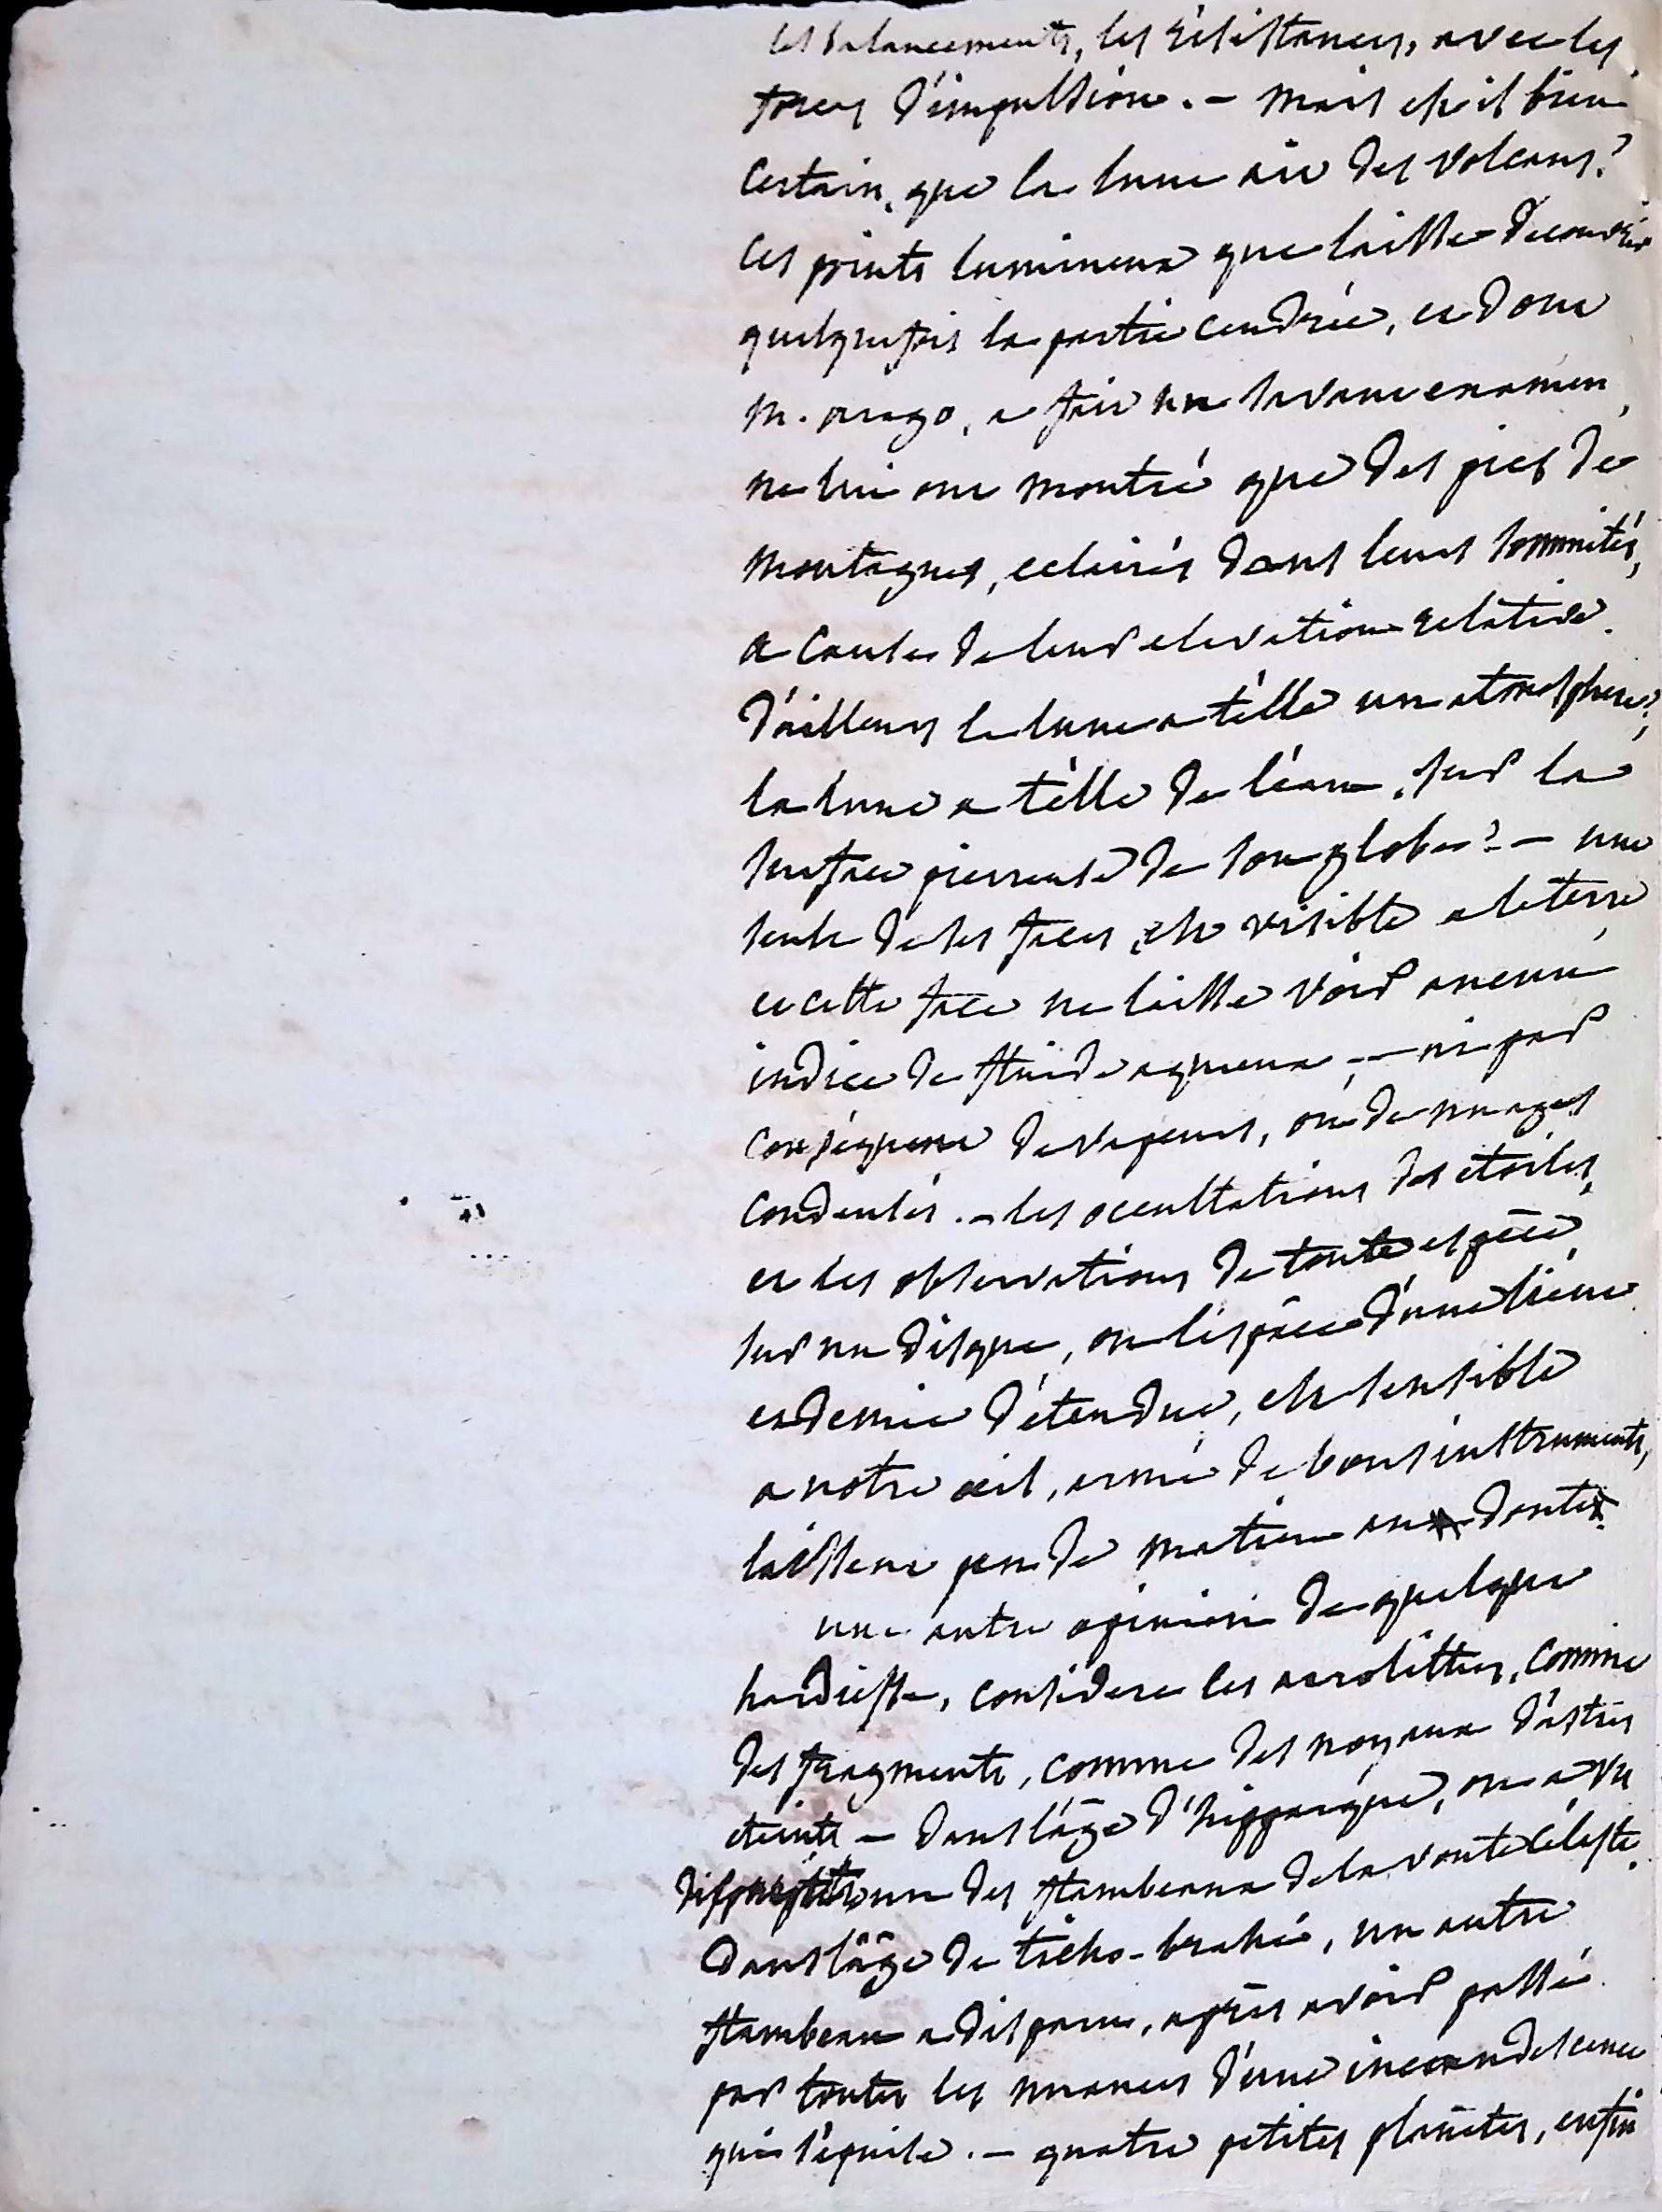 les balancements, les résistances, avec les
forces d'impulsion. – mais est-il bien
certain, que la lune ait des volcans?
les points lumineux que laisse découvrir
quelquefois la partie cendrée, et dont
m. arago, a fait un savant examen,
ne lui ont montré que des pics de
montagnes, eclairés dans leurs sommités,
a cause de leur elevation relative.
d'ailleurs la lune a t'elle un atmosphere?,
la lune a t'elle de l'eau, sur la
surface pierreuse de son globe? – une
seule de ses faces, est visible a la terre,
et cette face ne laisse voir aucun
indice de fluide aqueux, – ni par
conséquent de vapeurs, ou de nuages
condensés. – les occultations des etoiles,
et les observations de toute espèce,
sur un disque, ou l'espace d'une lieue
et demie d'étendue, est sensible
a notre œil, armé de bons instruments,
laissent peu de matiere au doute.
une autre opinion de quelque
hardiesse, considere les aerolithes, comme
des fragments, comme des noyaux d'astres
eteints – dans l'âge d'hipparque, on a vu
un des flambeaux de la voute céleste.
dans l'âge de ticho-brahé, un autre
flambeau a disparu, après avoir passé
par toutes les nuances d'une incandescence
qui s'épuise. – quatre petites planetes, enfin